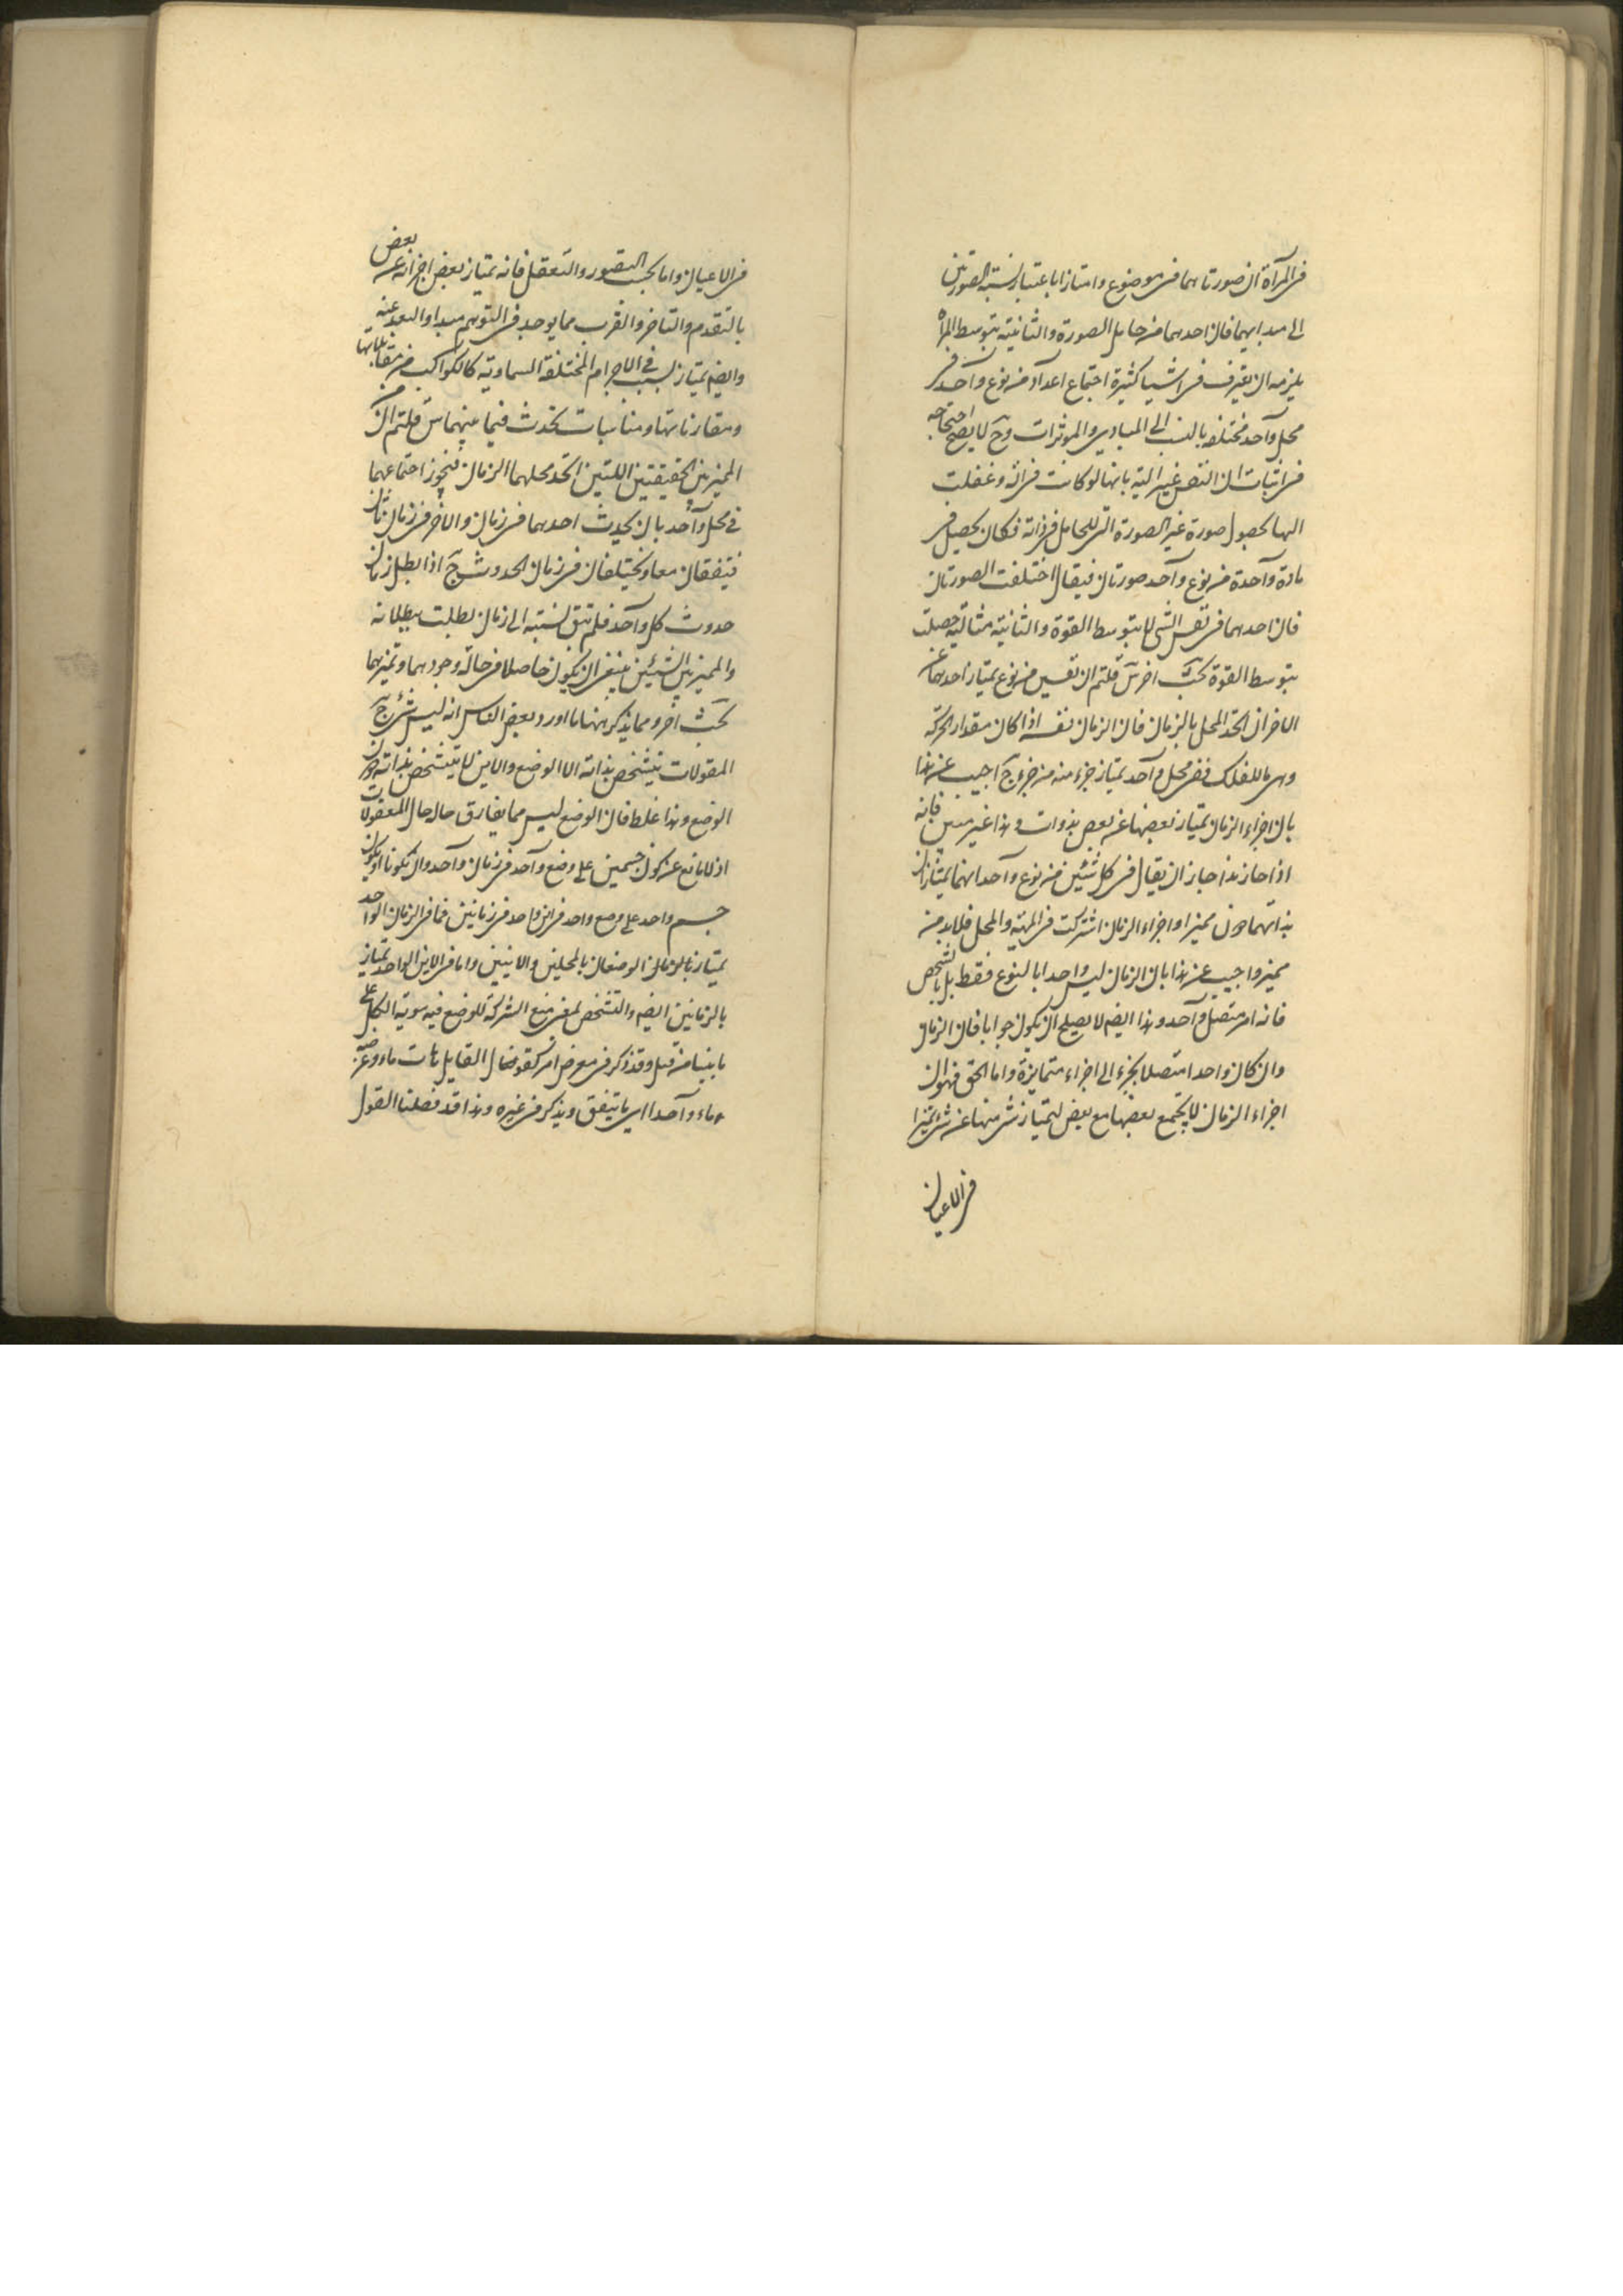 في المرآة ان صورتاهما في موضوع وامتازا باعتبار نسبة الصورتين
الى مبدأيهما فان احدهما من حامل الصورة والثانية بتوسط المرآة
يلزمه ان يعترف في اشيا كثيرة اجتماع اعداد من نوع واحد في
محل واحد مختلفه بالنسب الى المبادى والموثرات وح لا يصح احتجاجه
في اثبات ان النفس غير الية بانها لو كانت في الة وغفلت
الها بحصول صورة غير الصورة التي للحامل في ذاته فكان يحصل في
مادة واحدة من نوع واحد صورتان فيقال اختلفت الصورتان
فان احدهما في نفس الشى لا بتوسط القوة والثانية مثالية حصلت
بتوسط القوة بحث اخر س قلتم ان نفسين من نوع يمتاز احدهما عن
الاخر ان اتحد المحل بالزمان فان الزمان نفسه اذا كان مقدار الحركة
وهى للفلك ففى محل واحد يمتاز جزء منه من جزء ج اجيب عن هذا
بان اجزاء الزمان يمتاز بعضها عن بعض بذوات وهذا غير متين فانه
اذا جاز هذا جاز ان يقال في كل شيئين من نوع واحد انهما يمتازان
بذاتهما دون مميز واجزاء الزمان اشتركت في المهية والمحل فلا بد من
مميز واجيب عن هذا بان الزمان ليس واحدا بالنوع فقط بل بالشخص
فانه امر متصل واحد وهذا ايضم لا يصلح ان يكون جوابا فان الزمان
وان كان واحدا متصلا يجزء الى اجزاء متمايزة واما الحق فهو ان
اجزاء الزمان لا يجتمع بعضها مع بعض ليمتاز شى منها عن شئ تميزا
في الاعيان
في الاعيان واما بحسب التصور والتعقل فانه يمتاز بعض اجزائه عن بعض
بالتقدم والتاخر والقرب مما يوجد في التوهم مبدا والبعد عنه
وايضم يمتاز بسبب في الاجرام المختلفة السماوية كالكواكب من مقابلاتها
ومقارناتها ومناسبات تحدث فيما بينهما س قلتم ان
المميز بين الحقيقتين اللتين اتحد محلهما الزمان فيجوز اجتماعهما
في محل واحد بان يحدث احدهما في زمان والاخر في زمان ثان
فيتفقان معا ويختلفان في زمان الحدوث ج اذا بطل زمان
حدوث كل واحد فلم تبق نسبته الى زمان بطلت ببطلانه
والمميز بين الشيئين ينبغى ان يكون حاصلا في حالة وجودهما وتميزهما
بحث اخر ومما يذكر ههنا ما اورد بعض الناس انه ليس شئ من
المقولات يتشخص بذاته الا الوضع والاين لا يتشخص بذاته دون
الوضع وهذا غلط فان الوضع ليس مما يفارق حاله حال المعقولات
اذ لا مانع عن كون جسمين على وضع واحد في زمان واحد وان يكونا او يكون
جسم واحد على وضع واحد في اين واحد في زمانين فما في الزمان الواحد
يمتاز بالزمان الوضعان بالمحلين والاينين واما في الاين الواحد يمتاز
بالزمانين ايضم والتشخص لمعنى منع الشركة للوضع فيه سوية الكل على
ما بينا من قبل وقد ذكر في معرض اخر كقو القايل ماء وعن
ماء واحدا اى ما يتفق ويذكر في غيره وهذا قد فصلنا القول